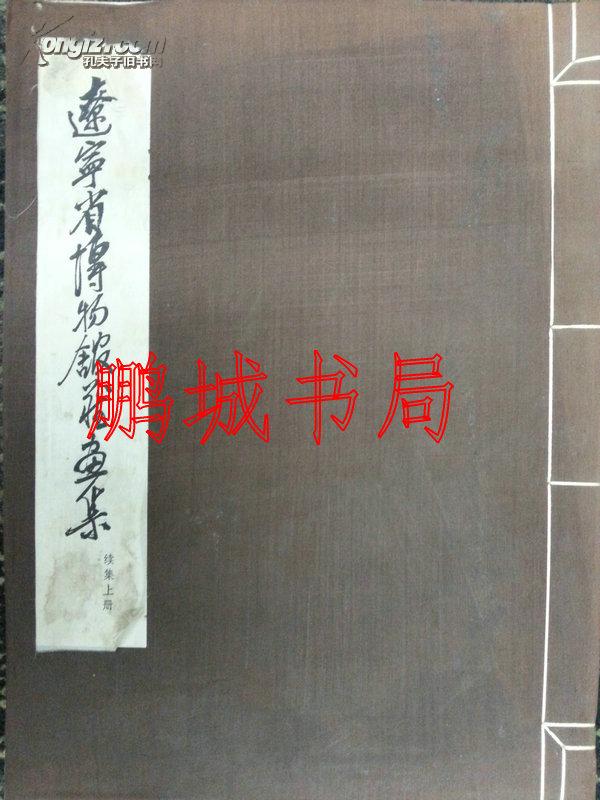 Kongfz.com
孔夫子旧书网
遼寧省博物館藏畫集
续集上册
鹏城书局